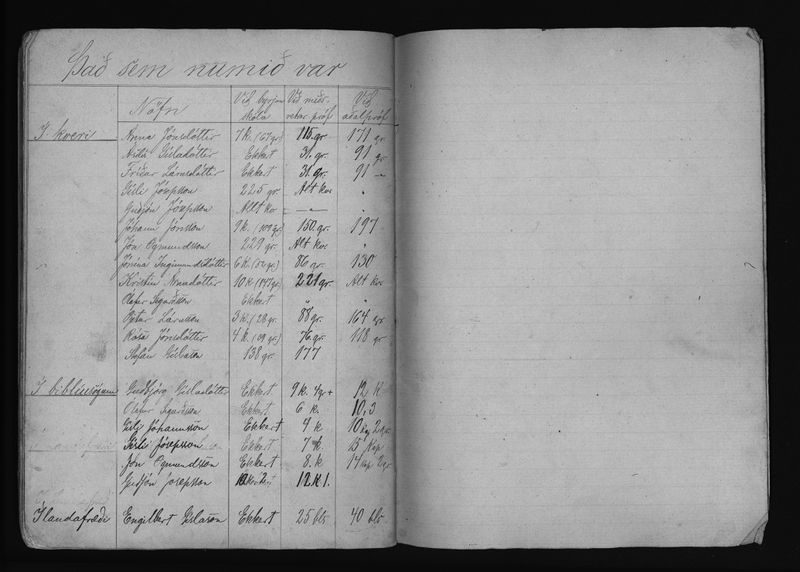 Það sem numið var
Nöfn Við byrjun skóla Við miðs vetrar próf Við aðalpróf
Í kveri Anna Jónsdóttir 7 k. (67 gr.) 115 gr. 171 gr.
Gísladóttir Ekkert 31. gr. 91 gr.
Lárusdóttir Ekkert 31. gr. 91 –
Gísli Jósepsson 225 gr. Allt kver "
Guðjón Jósepsson Allt kver — " — "
Jóhann Jónsson 9 k. (109 gr.) 150 gr. 197
Jón Ögmundsson 229 gr. Allt kver "
Jónína Ingimundsdóttir 6 k. 86 gr. 130
Kristín Annadóttir 10 k (147 gr.) 221 gr. Allt kver
Ólafur Sigurðsson Ekkert " "
Óskar Lárusson 3 k. (28 gr.) 88 gr. 164 gr.
Rósa Jónsdóttir 4 k. (39 gr.) 76 gr. 118 gr
Stefán Gíslason 138 gr. 177
Í biblíusögum Guðbjörg Gísladóttir Ekkert 9 k. 4 gr + 12 k
Ólafur Sigurðsson Ekkert 6 k. 10,3
Jóhannsson Ekkert 4 k 10 kap 2 gr.
Gísli Jósepsson Ekkert 7 k. 15 kap
Jón Ögmundsson Ekkert 8. k 14 kap 2 gr.
Guðjón Jósepsson 12 k 1.
Í landafræði Engilbert Gíslason Ekkert 25 bls 40 bls